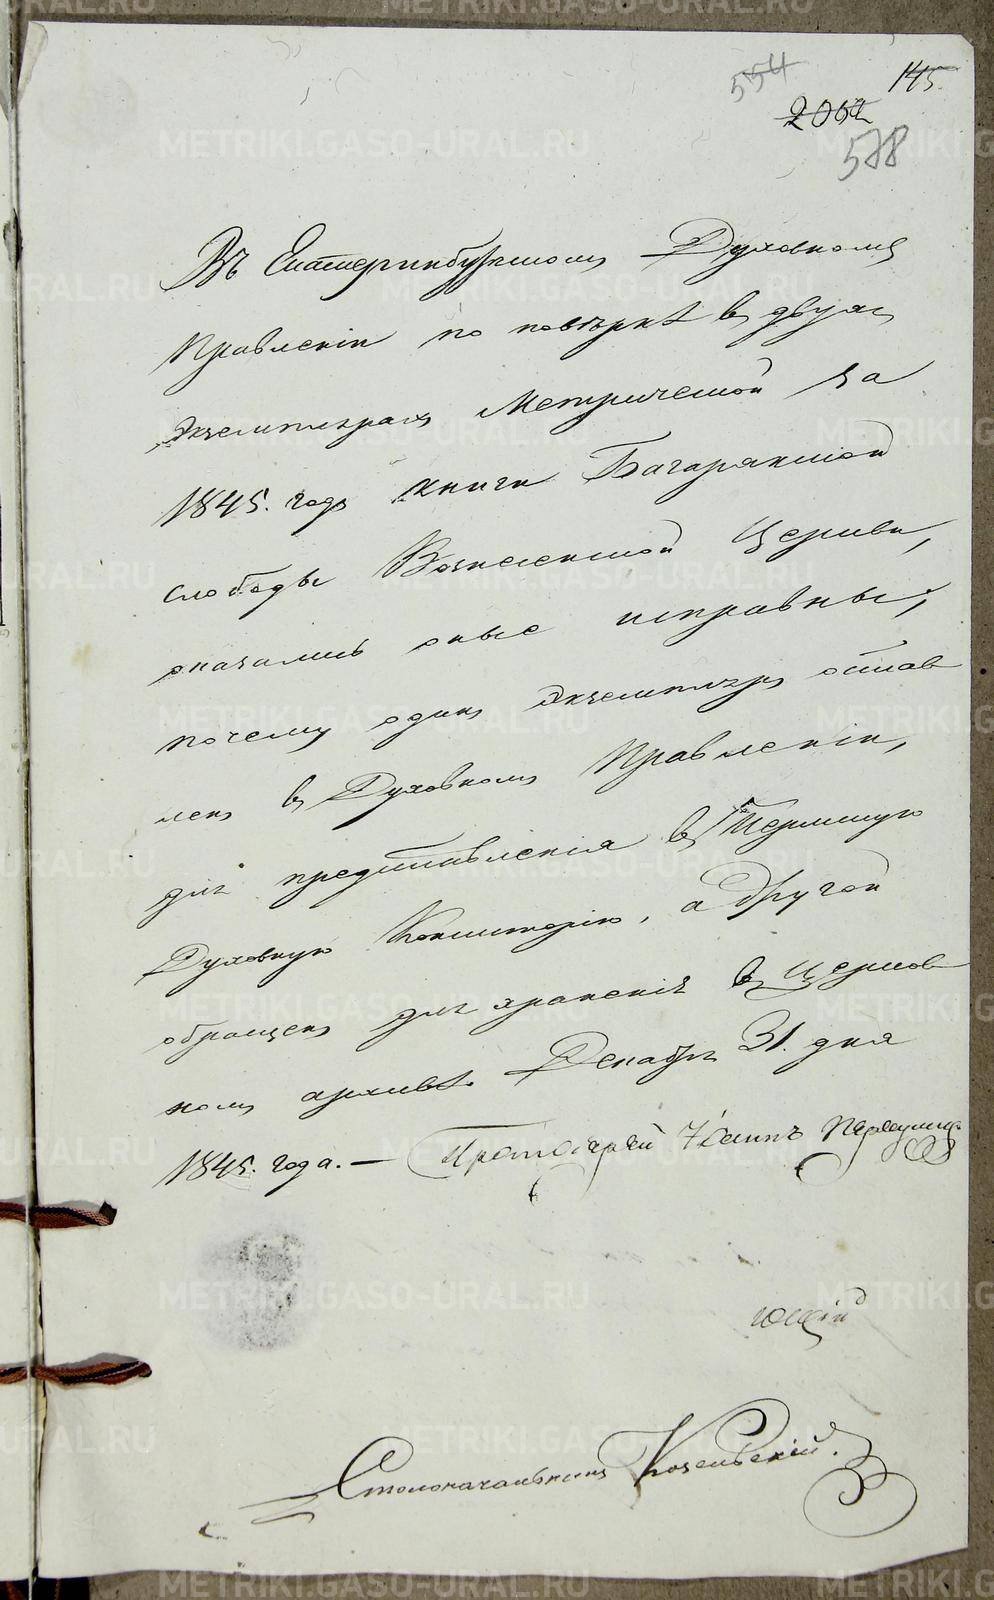 554
145.
2062
578
Въ Екатеринбургскомъ Духовномъ
Правленіи по повѣркѣ въ двухъ
экземплярахъ Метрической за
1845. годъ книги Багарякской
слободы Вознесенской Церкви,
оказались оные исправны;
почему одинъ экземпляръ остав
ленъ въ Духовномъ Правленіи,
для представленія въ Пермскую
Духовную Консисторію, а другой
обращенъ для храненія въ церков
номъ архивѣ. Декабря 31. дня
1845. года. — Протоіерей Іоаннъ
ющій
Столоначальникъ Козельскій.
METRIKI.GASO-URAL.RU